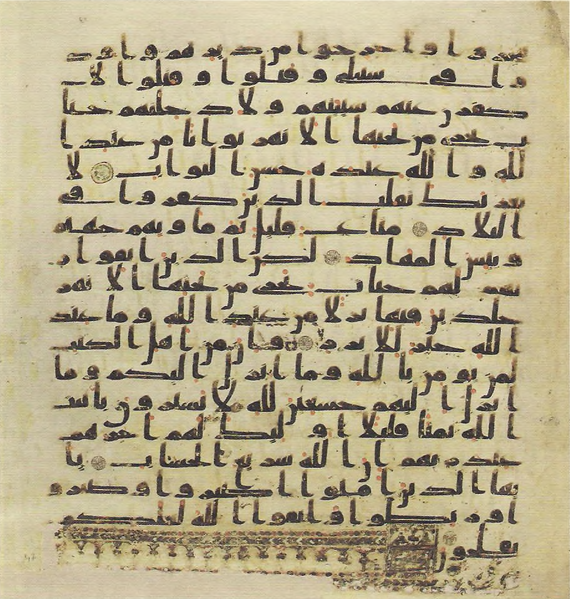 وا واخرجوا من ديرهم واوذ
وا في سبيلي وقتلوا وقتلوا لا
كفرن عنهم سيتهم ولادخلنهم جنا
ت تجري من تحتها الانهر ثوابا من عند ا
لله والله عنده حسن الثواب لا
يغرنك تقلب الذين كفروا في
البلاد متاع قليل ثم ماويهم جهنم
وبيس المهاد لكن الذين اتقوا ر
بهم لهم جنات تجري من تحتها الانهر
خلدين فيها نزلا من عند الله وما عند
الله خير للابرار وان من اهل الكتب
لمن يومن بالله وما انزل اليكم وما
انزل اليهم خشعين لله لا يشترون بايت
الله ثمنا قليلا اوليك لهم اجرهم
عند ربهم ان الله سريع الحساب يا
يها الذين امنوا اصبروا وصبرو
ا ورابطوا واتقوا الله لعلكم
تفلحون